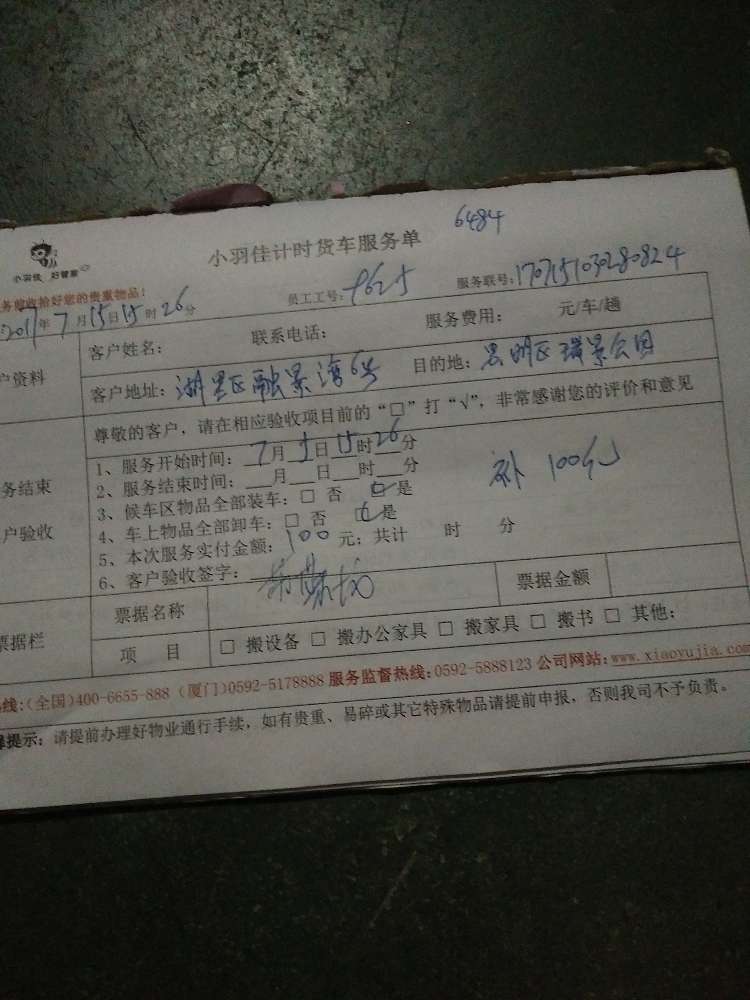 6484
小羽佳 好管家
小羽佳计时货车服务单
务前收拾好您的贵重物品！
员工工号：9625 服务联号：170715103280824
2017年7月15日15时26分
客户姓名： 联系电话： 服务费用： 元/车/趟
户资料
客户地址：湖里区融景湾6号 目的地：思明区瑞景公园
尊敬的客户，请在相应验收项目前的“□”打“√”，非常感谢您的评价和意见
1、服务开始时间：7月 日15时26分
2、服务结束时间：___月___日___时___分
务结束
户验收
3、候车区物品全部装车：□ 否 □是
4、车上物品全部卸车：□ 否 □是
补 100元
5、本次服务实付金额：100元；共计 时 分
6、客户验收签字：
票据栏
票据名称 票据金额
项 目 □ 搬设备 □ 搬办公家具 □ 搬家具 □ 搬书 □ 其他：
线：(全国)400-6655-888 (厦门)0592-5178888 服务监督热线：0592-5888123 公司网站：www.xiaoyujia.com
提示：请提前办理好物业通行手续，如有贵重、易碎或其它特殊物品请提前申报，否则我司不予负责。